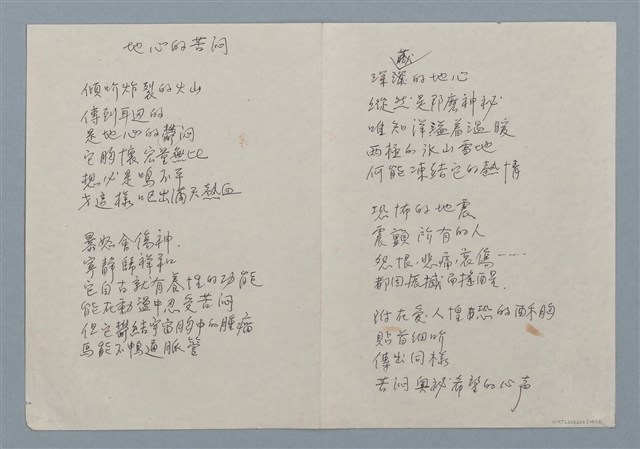 地心的苦闷
傾听炸裂的火山
傳到耳边的
是地心的鬱闷
它胸懷宏量無比
想必是鳴不平
才這樣吧出滿天熱血
暴怒會傷神.
寧静歸祥和
它自古就有養性的功能
能在動盪中忍受苦闷
但它鬱結宇宙胸中的腫瘤
焉能不鴨通脈管
藏
深深的地心
縱然是那麽神秘
唯知洋溢着溫暖
两極的氷山雪地
何能凍結它的熱情
恐怖的地震
震顫所有的人
怨恨,悲痛,哀傷……
都因振撼而搖曳.
附在愛人惶恐的酥胸
貼首細听
傳出同樣
苦闷奥秘希望的心声